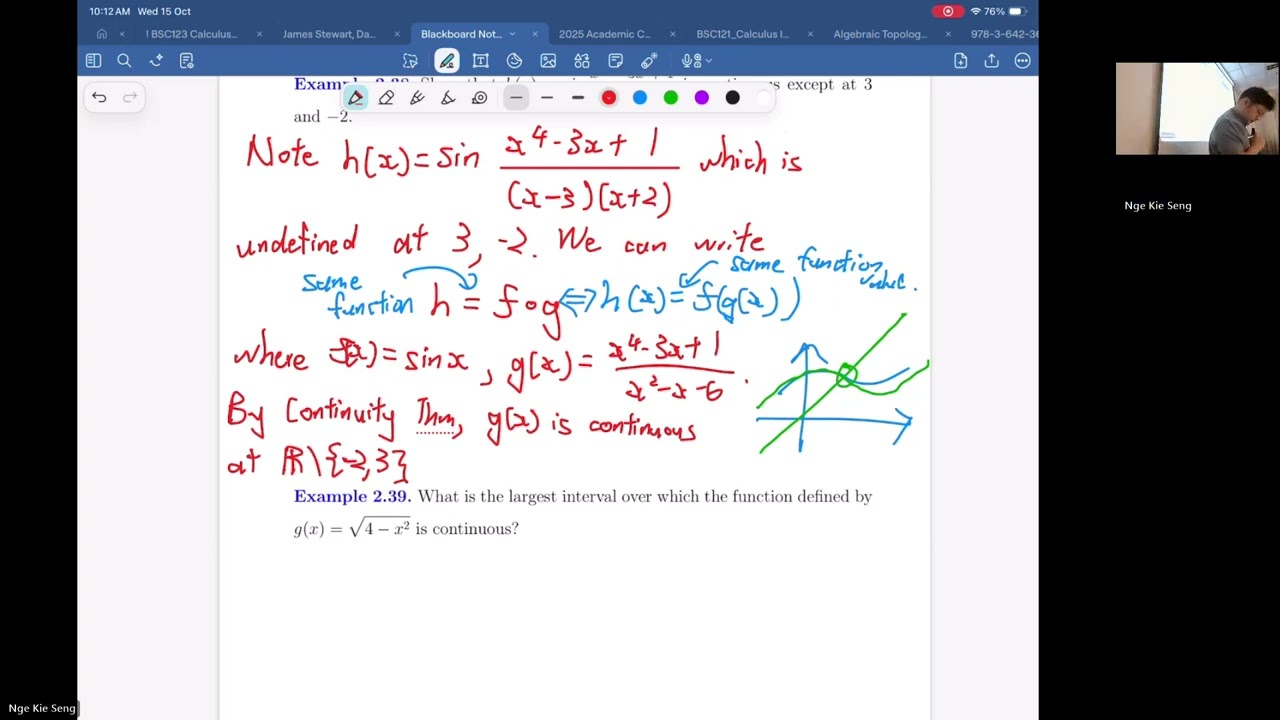 10:12 AM Wed 15 Oct
76%
! BSC123 Calculus...
James Stewart, Da...
Blackboard Not...
2025 Academic C...
BSC121_Calculus I...
Algebraic Topolog...
978-3-642-36
s except at 3
and −2.
Note h(x) = sin x⁴-3x+1 / (x-3)(x+2) which is
undefined at 3, -2. We can write
same function
same function value.
h = f∘g ⟺ h(x) = f(g(x))
where f(x) = sin x, g(x) = x⁴-3x+1 / x²-x-6 .
By Continuity Thm, g(x) is continuous
at ℝ\{-2,3}
Example 2.39. What is the largest interval over which the function defined by
g(x) = √(4 − x²) is continuous?
Nge Kie Seng
Nge Kie Seng